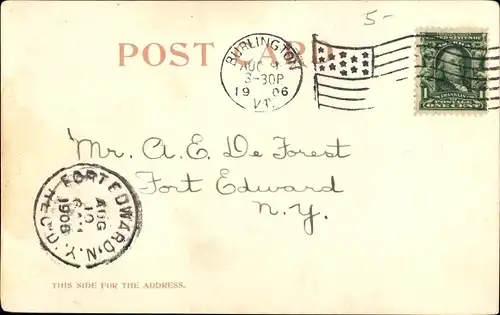 5-
POST CARD
BURLINGTON
AUG 9
3-30P
1906
VT.
UNITED STATES OF AMERICA
FRANKLIN
POSTAGE
1 ONE CENT 1
Mr. A. E. De Forest
Fort Edward
N.Y.
FORT EDWARD, N.Y. REC'D.
AUG
10
1906
THIS SIDE FOR THE ADDRESS.